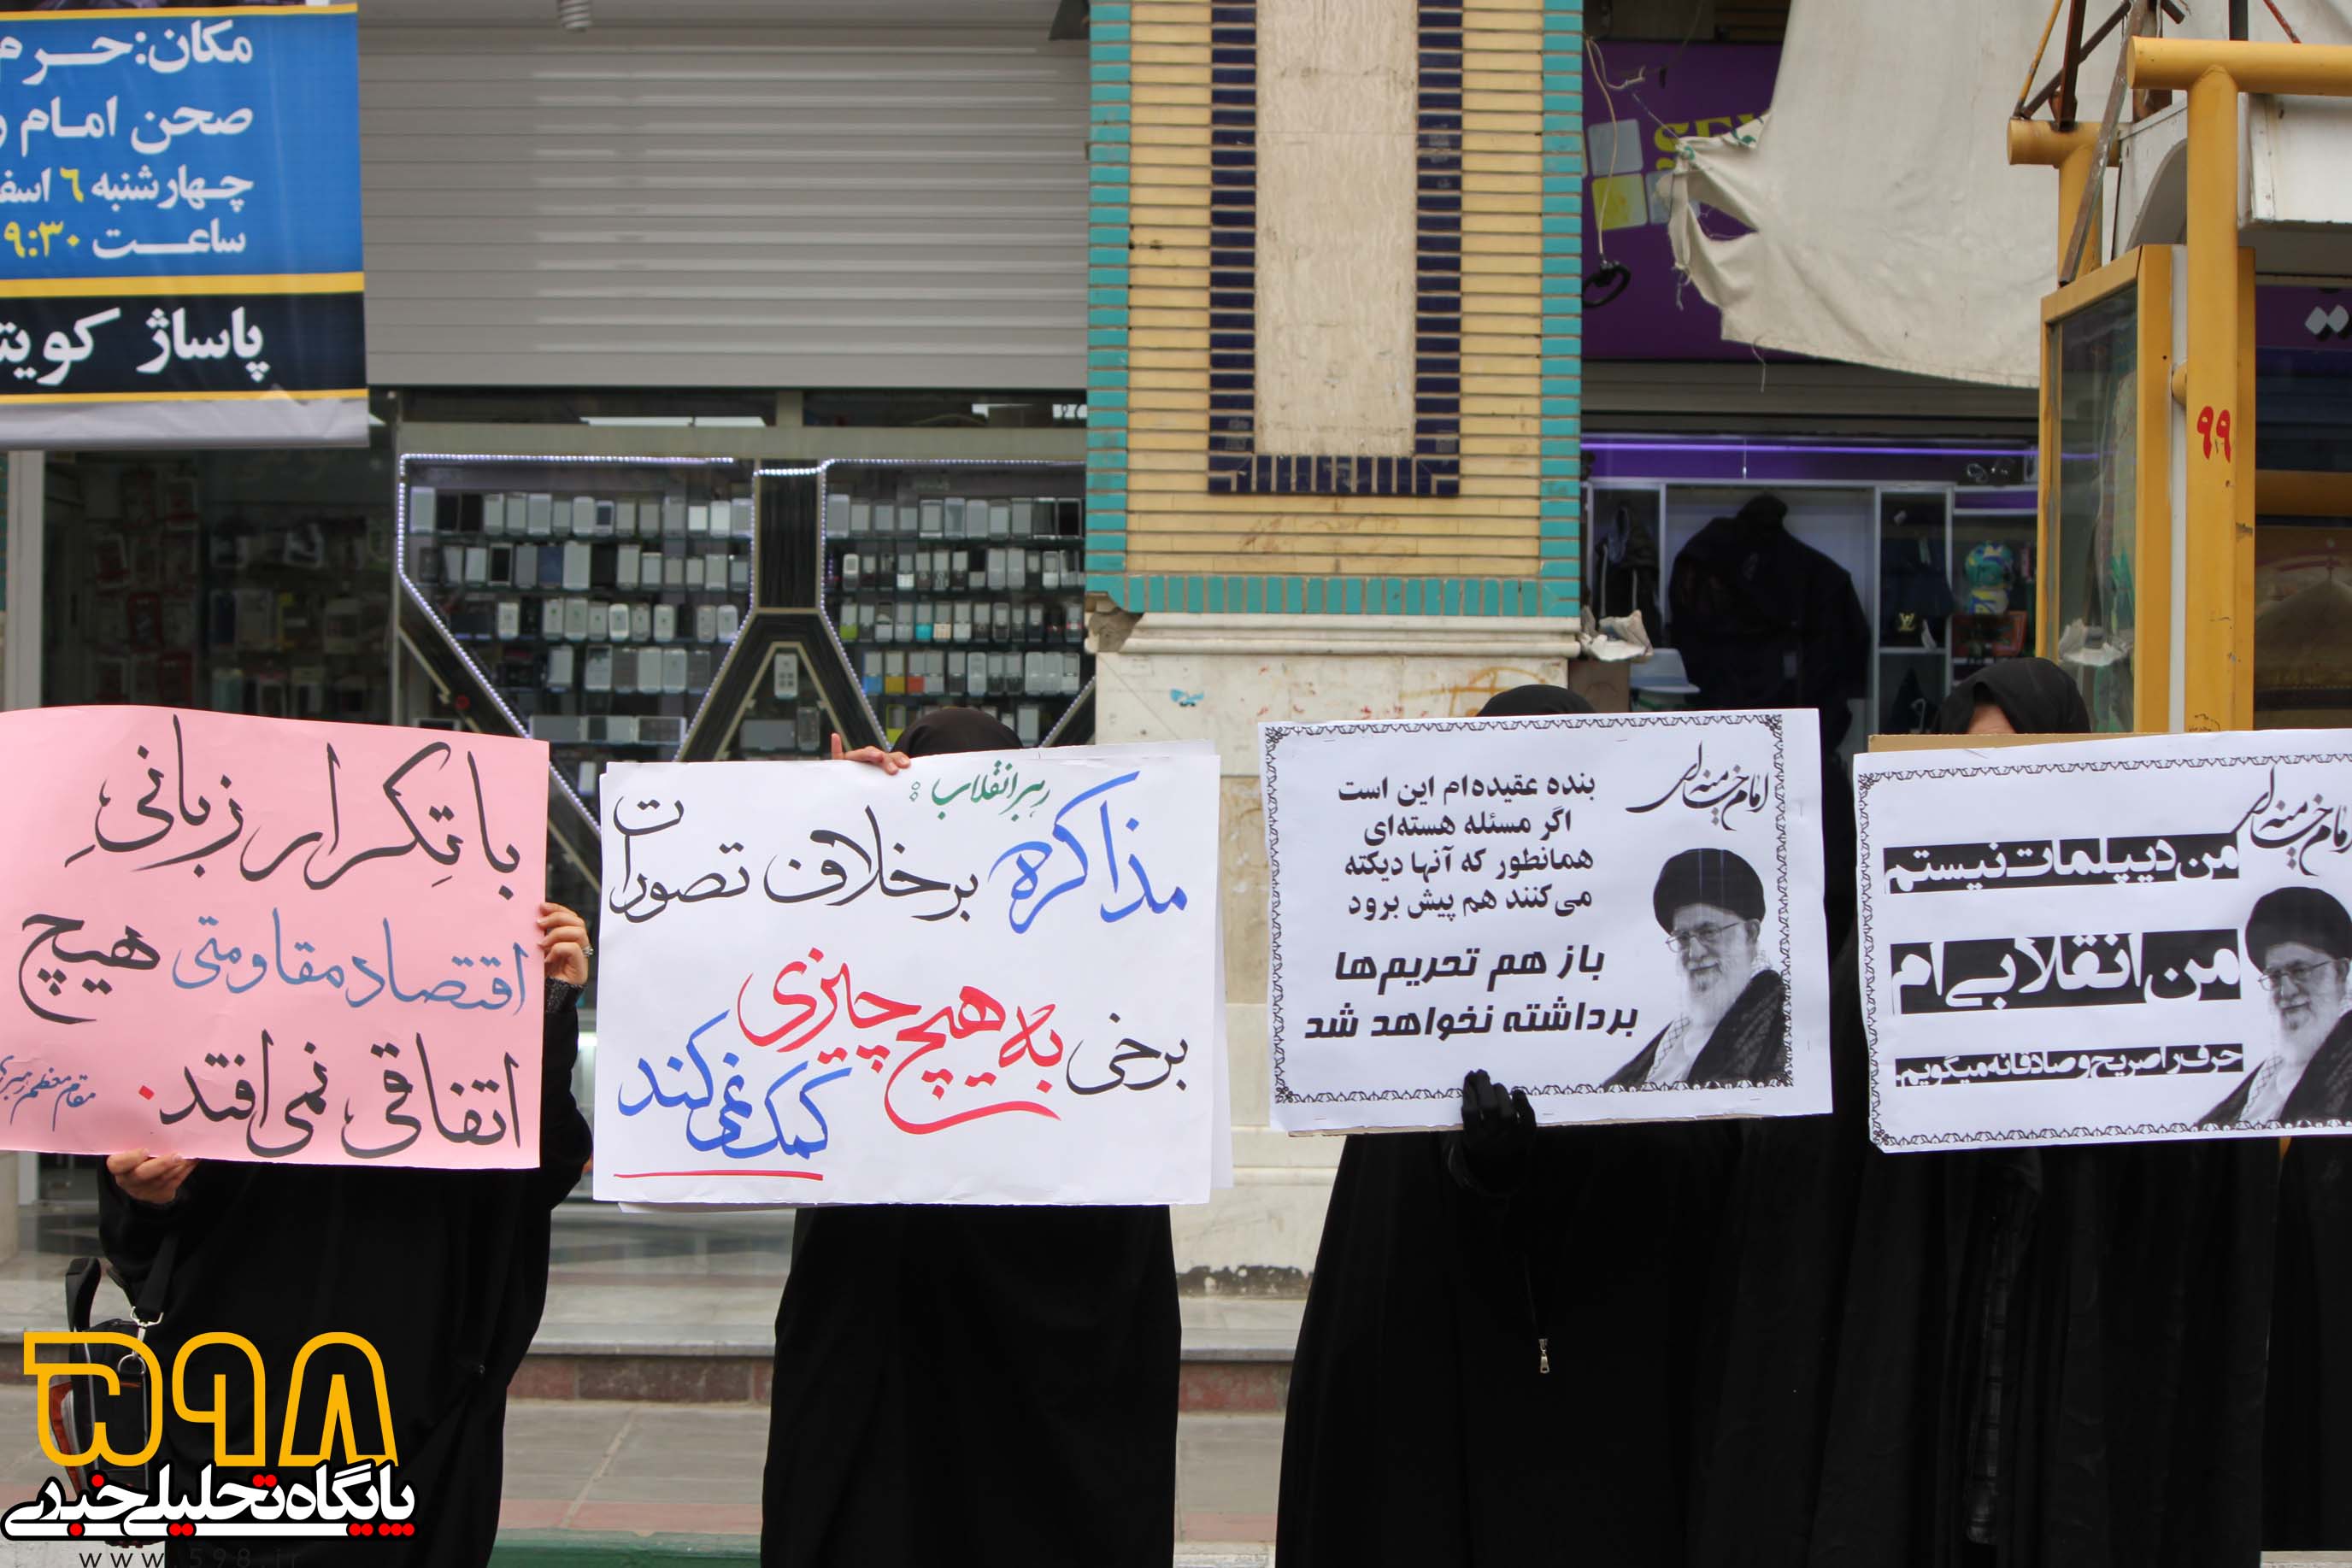 مکان:حرم
صحن امام
چهارشنبه ۶
ساعت ۹:۳۰
پاساژ
با تکرار زبانیِ
اقتصاد مقاومتی هیچ
اتفاقی نمی افتد.
مقام معظم رهبری
رهبر انقلاب:
مذاکره برخلاف تصورات
برخی به هیچ چیزی
کمک نمی کند
امام خامنه ای
بنده عقیده‌ام این است
اگر مسئله هسته‌ای
همانطور که آنها دیکته
می‌کنند هم پیش برود
باز هم تحریم‌ها
برداشته نخواهد شد
امام خامنه ای
من دیپلمات نیستم
من انقلابی ام
حرف را صریح و صادقانه میگویم
۹۹
۵۹۸
پایگاه تحلیلی خبری
www.598.ir